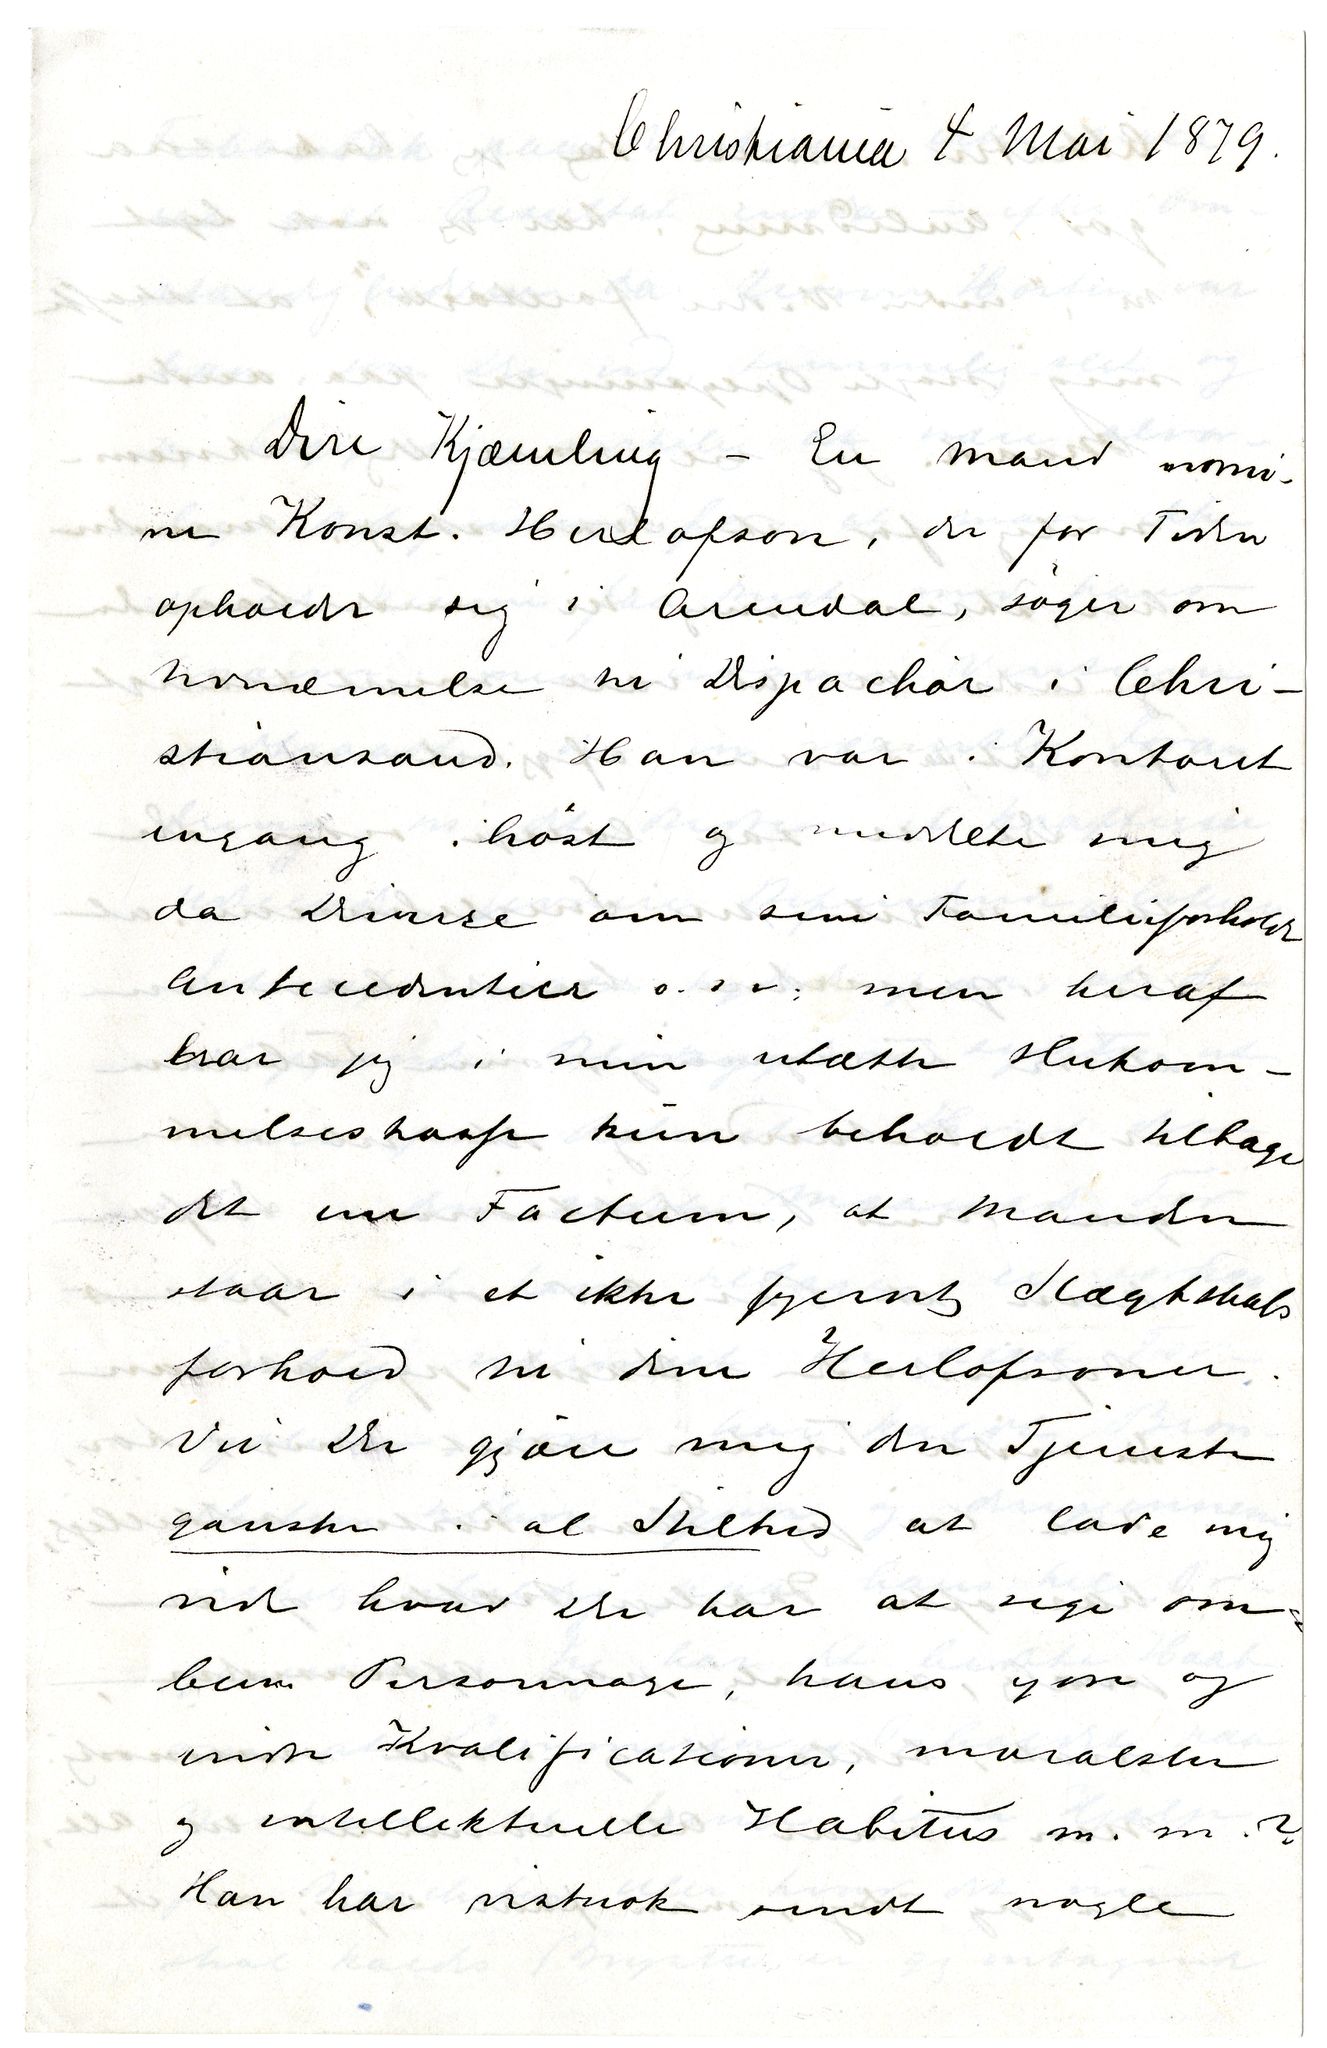 Christiania 4 Mai 1879.
Kjæmling – En Mand nomi-
ne Konst. Herlofson, der for Tiden
opholder sig i Arendal, söger om
Udnævnelse til Dispachör i Chri-
stiansand. Han var i Kontoret
engang ihöst og meddelte mig
da Diverse om sine Familieforholde
Antecedentier o. s. v. men heraf
har jeg i min utætte Hukom-
melseskasse kun beholdt tilbage
det ene Factum, at Manden
staar i et ikke fjernt Slægtskabs
forhold til dine Herlofsoner.
Vil Du gjöre mig den Tjeneste
ganske i al Stilhed at lade mig
vide hvad Du har at sige om
denne Personnage, hans ydre og
indre Kvalificationer, moralske
og intellektuelle Habitus m. m.?
Han har vistnok sendt nogle